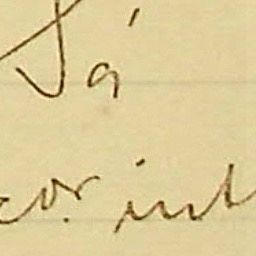 Sá
cor. int